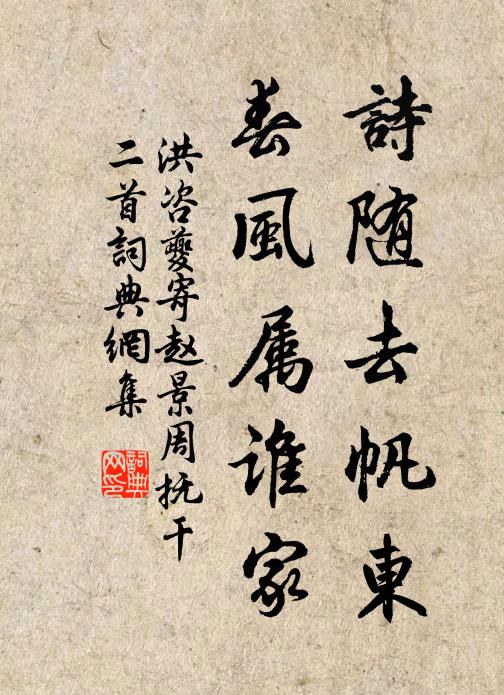 詩随去帆東
春風属誰家
洪咨夔寄赵景周抚干
二首詞典網集
詞典网印